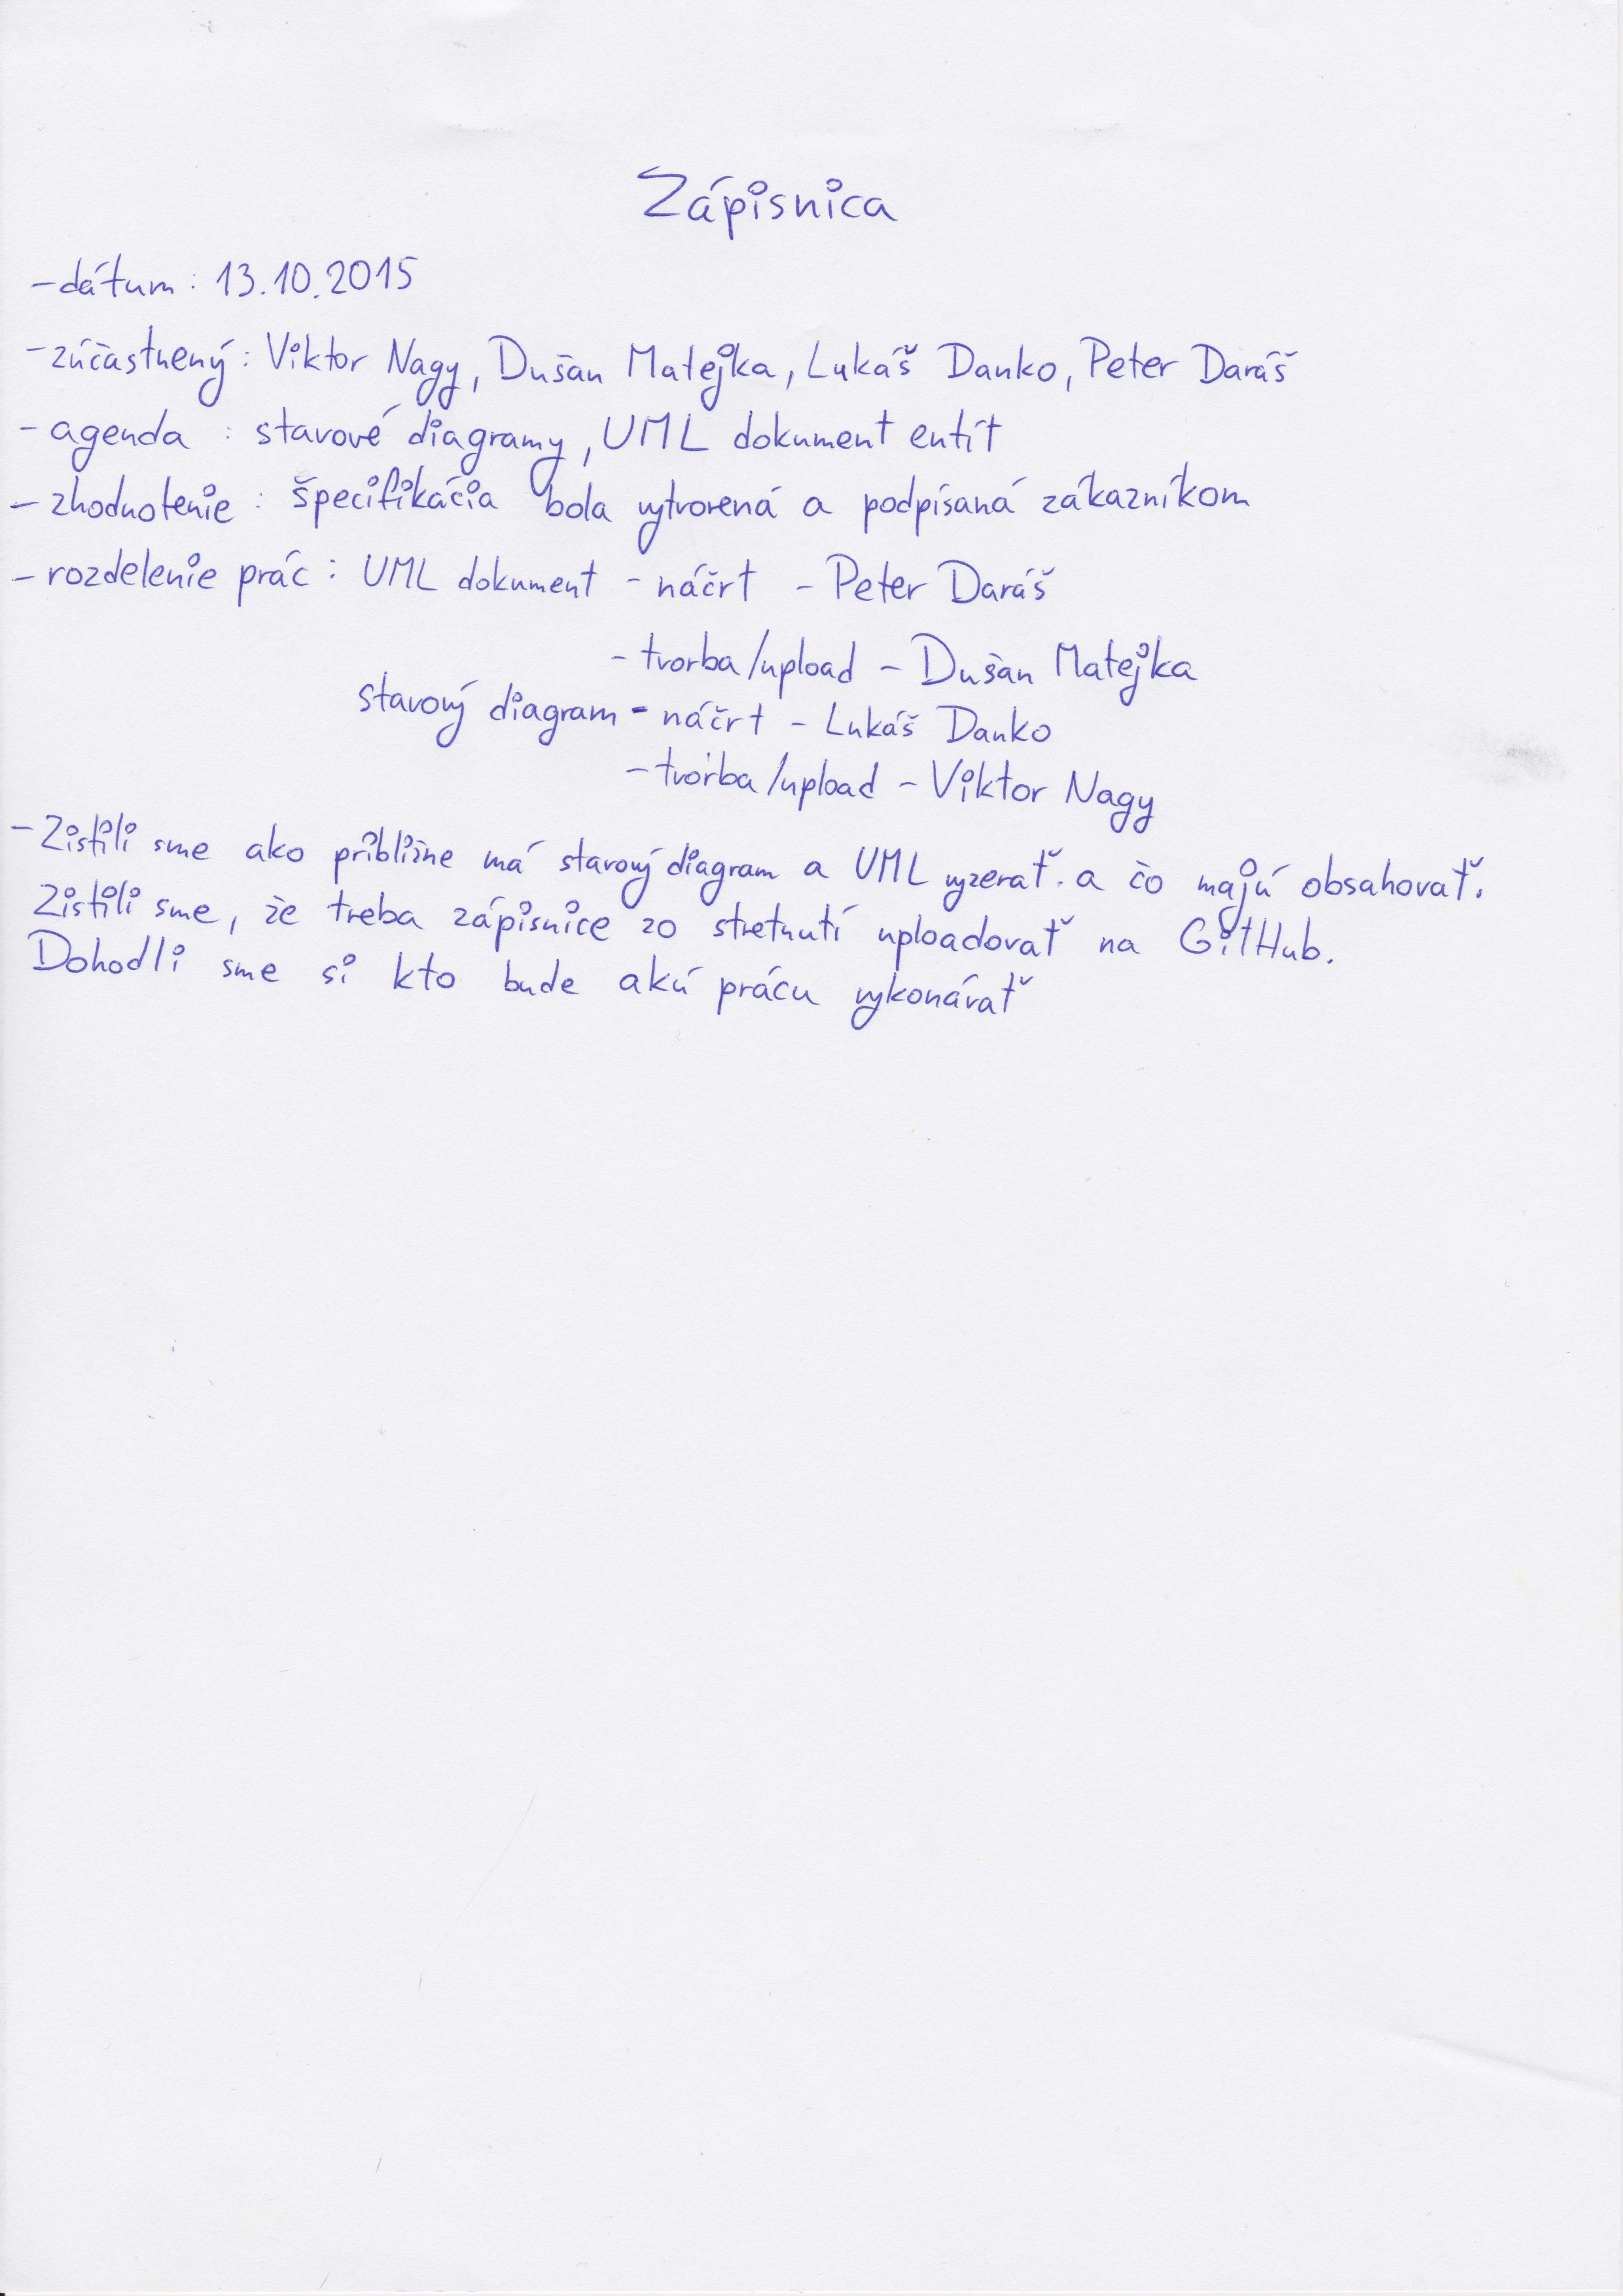 Zápisnica
- dátum : 13.10.2015
- zúčastnený : Viktor Nagy, Dušan Matejka, Lukáš Danko, Peter Daráš
- agenda : stavové diagramy, UML dokument entít
- zhodnotenie : špecifikácia bola vytvorená a podpísaná zákazníkom
- rozdelenie prác : UML dokument - náčrt - Peter Daráš
- tvorba/upload - Dušan Matejka
stavový diagram - náčrt - Lukáš Danko
- tvorba/upload - Viktor Nagy
- Zistili sme ako približne má stavový diagram a UML vyzerať. a čo majú obsahovať.
Zistili sme, že treba zápisnice zo stretnutí uploadovať na GitHub.
Dohodli sme si kto bude akú prácu vykonávať